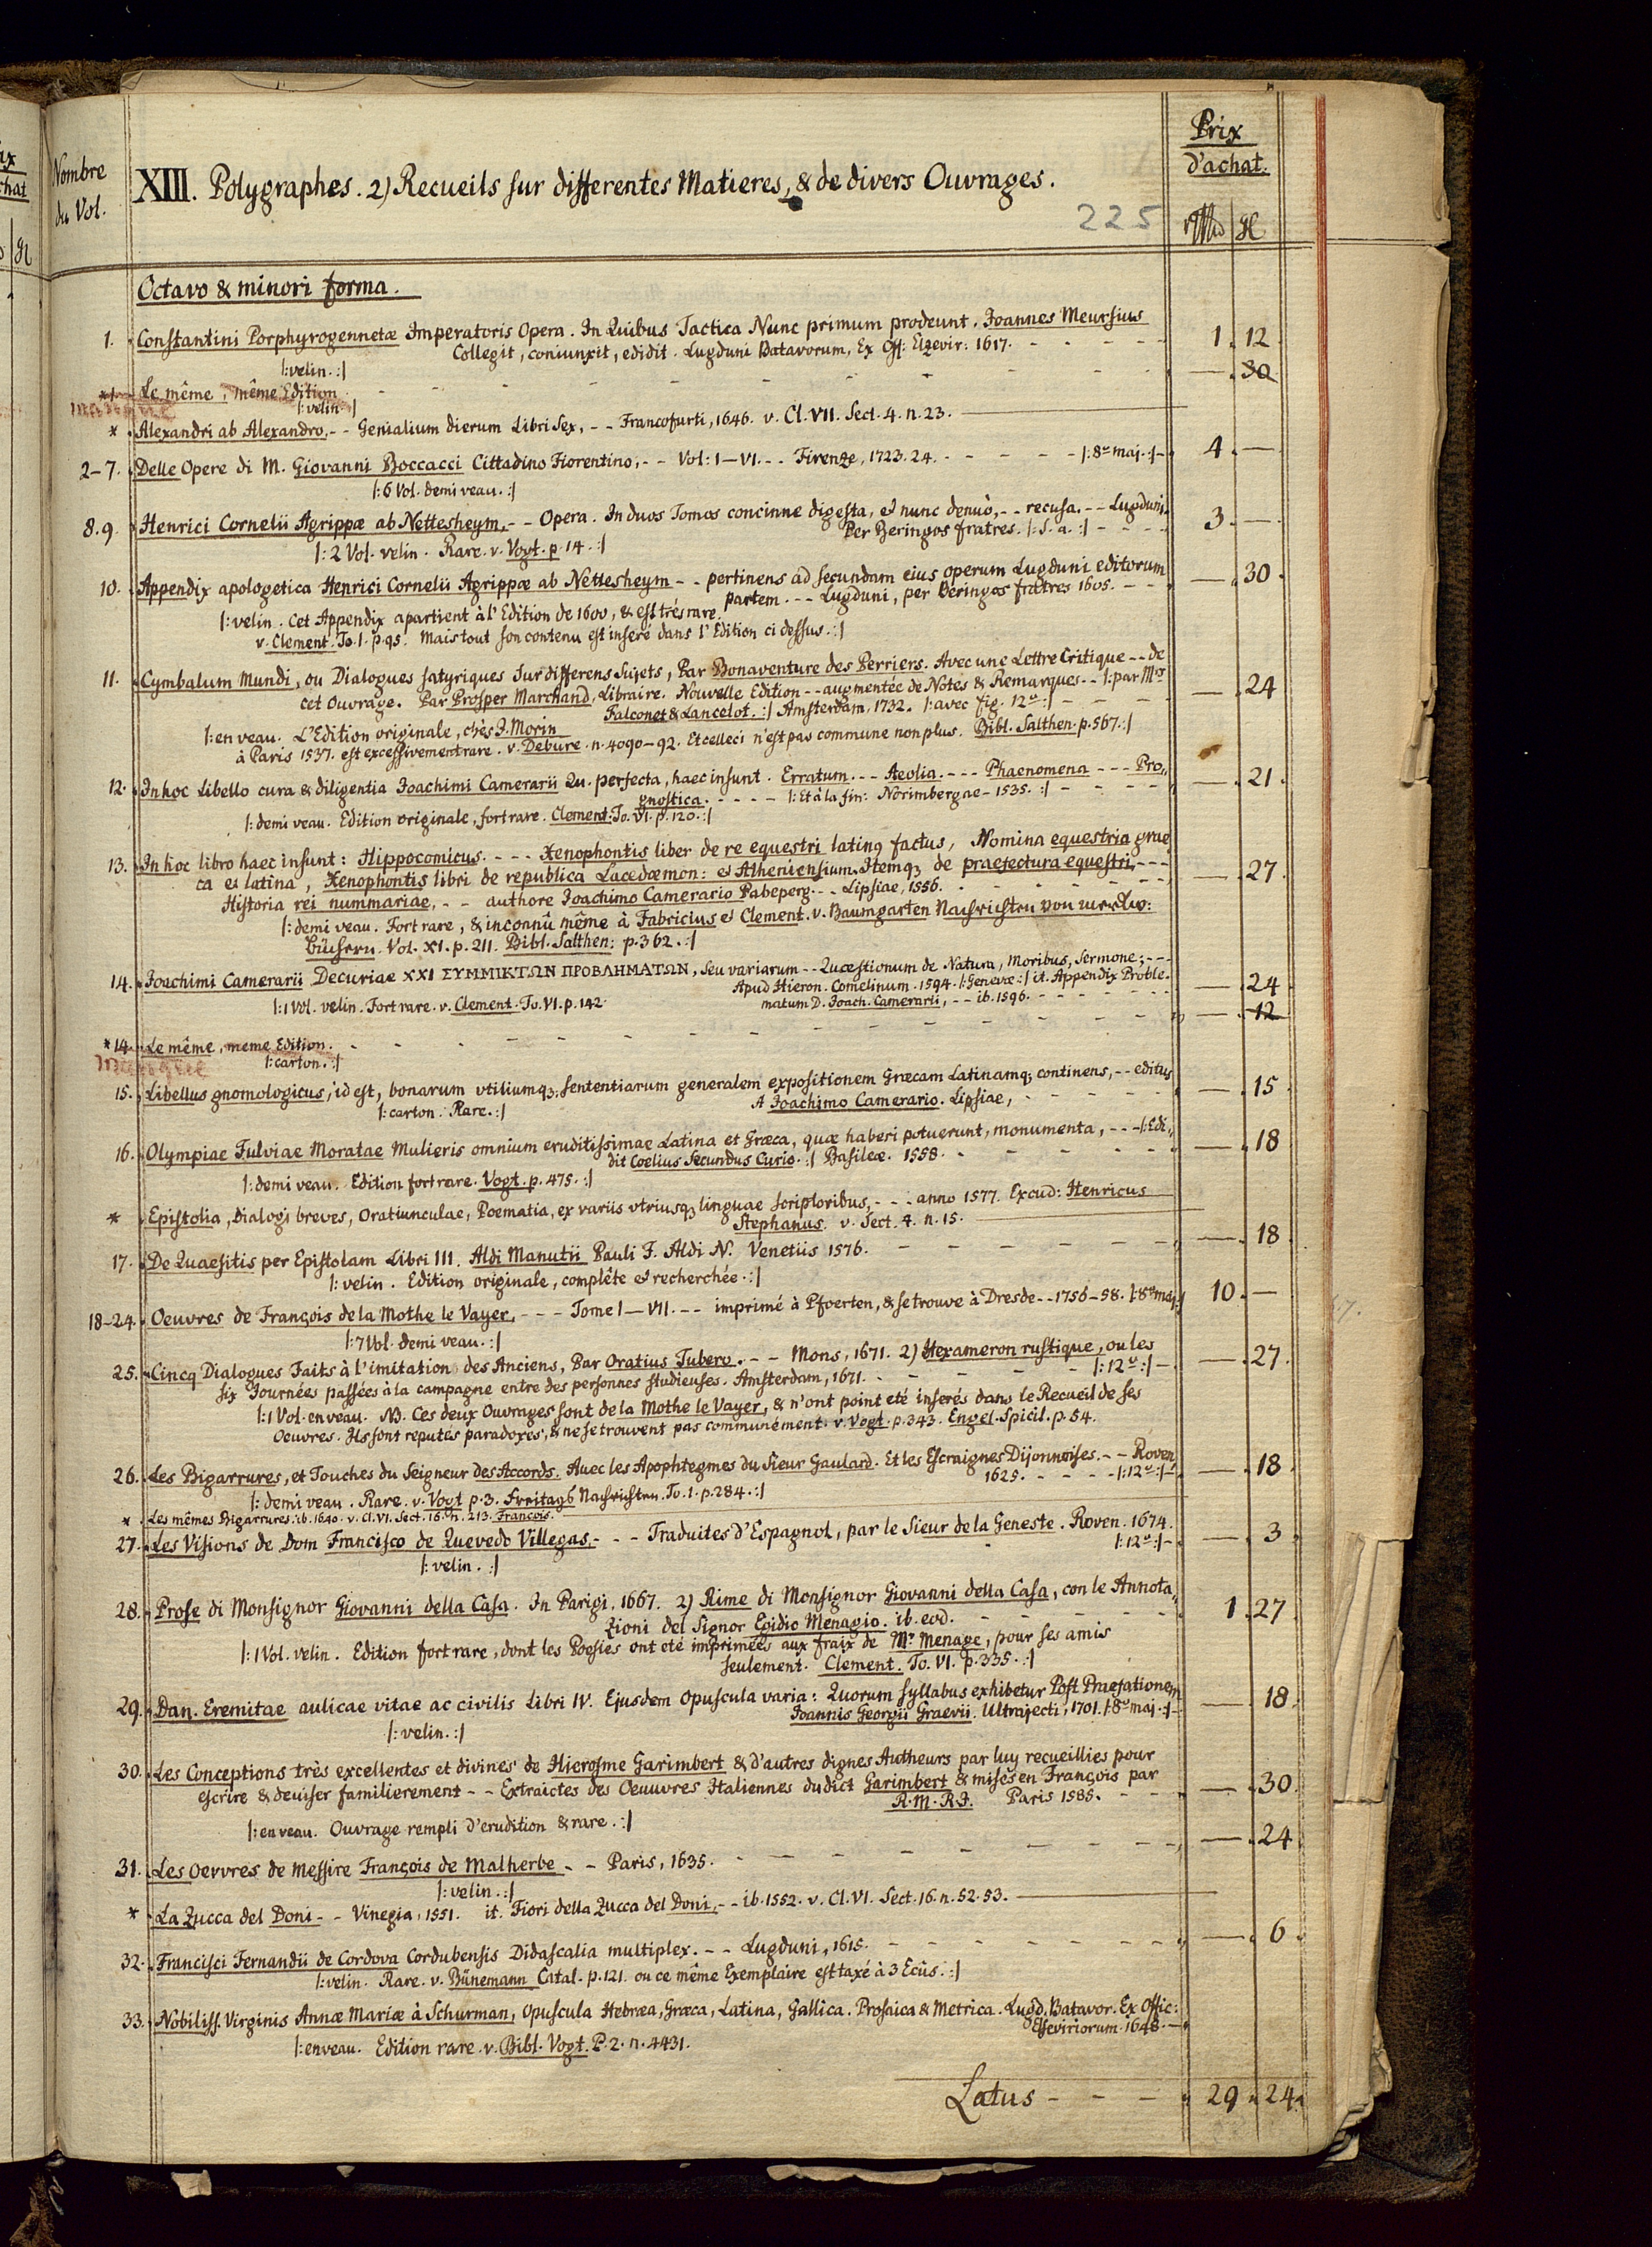 Prix
d'achat.
Nombre
du Vol.
XIII. Polygraphes. 2) Recueils sur differentes Matieres, & de divers Ouvrages.
225
Octavo & minori forma.
1. Constantini Porphyrogennetæ Imperatoris Opera. In Quibus Tactica Nunc primum prodeunt. Joannes Meursius
Collegit, coniunxit, edidit. Lugduni Batavorum, Ex Off: Elzevir: 1617. - - - - 1. 12
|: velin. :|
*1 Le même, même Edition - - - - - - - - - — . 30
manque |: velin :|
* Alexandri ab Alexandro, - - Genialium dierum Libri Sex, - - Francofurti, 1646. v. Cl. VII. Sect. 4. n. 23. —
2-7. Delle Opere di M. Giovanni Boccacci Cittadino Fiorentino, - - Vol: I—VI. - - Firenze, 1723. 24. - - - - - |: 8º maj. :| - 4. —
|: 6 Vol. demi veau. :|
8.9. Henrici Cornelii Agrippæ ab Nettesheym, - - Opera. In duos Tomos concinne digesta, et nunc denuò, - - recusa. - - Lugduni,
Per Beringos fratres. |: S. a. :| - - - 3. —
|: 2 Vol. velin. Rare. v. Vogt. p. 14. :|
10. Appendix apologetica Henrici Cornelii Agrippæ ab Nettesheym - - pertinens ad secundam eius operum Lugduni editorum
partem. - - Lugduni, per Beringos fratres 1605. - - — . 30.
|: velin. Cet Appendix apartient à l'Edition de 1600, & est très rare.
v. Clement. To. 1. p. 95. Mais tout son contenu est inseré dans l'Edition ci dessus. :|
11. Cymbalum Mundi, ou Dialogues satyriques sur differens Sujets, Par Bonaventure des Perriers. Avec une Lettre Critique - - de
cet Ouvrage. Par Prosper Marchand, Libraire. Nouvelle Edition - - augmentée de Notes & Remarques - - |: par Mrs
Falconet & Lancelot. :| Amsterdam, 1732. |: avec fig. 12º :| - - - - — . 24
|: en veau. L'Edition originale, chès J. Morin
à Paris 1537. est excessivement rare. v. Debure. n. 4090-92. Et celleci n'est pas commune non plus. Bibl. Salthen. p. 567. :|
12. In hoc Libello cura & diligentia Joachimi Camerarii Qu. perfecta, haec insunt. Erratum. - - - Aeolia. - - - Phaenomena - - - Pro„
gnostica. - - - - |: Et à la fin: Norimbergae - 1535. :| - - - — . 21
|: demi veau. Edition originale, fort rare. Clement: To. VI. p. 120. :|
13. In hoc libro haec insunt: Hippocomicus. - - - Xenophontis liber de re equestri latinq factus, Nomina equestria grae
ca et latina, Xenophontis libri de republica Lacedæmon: et Atheniensium. Itemq; de praefectura equestri, - - -
Historia rei nummariae, - - authore Joachimo Camerario Pabeperg. - - Lipsiae, 1556. - - - - — . 27.
|: demi veau. Fort rare, & inconnû même à Fabricius et Clement. v. Baumgarten Nachrichten von merckw:
büchern. Vol. XI. p. 211. Bibl. Salthen: p. 362. :|
14. Joachimi Camerarii Decuriae XXI ΣΥΜΜΙΚΤΩΝ ΠΡΟΒΛΗΜΑΤΩΝ, seu variarum - - Quæstionum de Natura, Moribus, Sermone; - - -
Apud Hieron. Comelinum. 1594. |: Genevæ :| it. Appendix Proble„
matum D. Joach. Camerarii, - - ib. 1596. - - - - — . 24
|: 1 Vol. velin. Fort rare. v. Clement. To. VI. p. 142.
*14. Le même, meme Edition. - - - - - - - - - - — . 12
manque |: carton. :|
15. Libellus gnomologicus, id est, bonarum vtiliumq; sententiarum generalem expositionem Græcam Latinamq; continens, - - editus
A Joachimo Camerario. Lipsiae, - - - - — . 15
|: carton. Rare. :|
16. Olympiae Fulviae Moratae Mulieris omnium eruditissimae Latina et Græca, quæ haberi potuerunt, monumenta, - - - |: Edi„
dit Coelius Secundus Curio. :| Basileæ. 1558. - - - - — . 18
|: demi veau. Edition fort rare. Vogt. p. 475. :|
* Epistolia, Dialogi breves, Oratiunculae, Poematia, ex variis vtriusq; linguae scriptoribus, - - - anno 1577. Excud: Henricus
Stephanus. v. Sect. 4. n. 15. —
17. De Quaesitis per Epistolam Libri III. Aldi Manutii Pauli F. Aldi N. Venetiis 1576. - - - - - - — . 18
|: velin. Edition originale, complête et recherchée. :|
18-24. Oeuvres de François de la Mothe le Vayer, - - - Tome I—VII. - - imprimé à Pfoerten, & se trouve à Dresde - - 1756-58. |: 8º maj :| 10. —
|: 7 Vol. demi veau. :|
25. Cincq Dialogues Faits à l'imitation des Anciens, Par Oratius Tubero. - - Mons, 1671. 2) Hexameron rustique, ou les
six Journées passées à la campagne entre des personnes studieuses. Amsterdam, 1671. - - - - |: 12º :| - — . 27.
|: 1 Vol. en veau. NB. Ces deux Ouvrages sont de la Mothe le Vayer, & n'ont point eté inserés dans le Recueil de ses
Oeuvres. Ils sont reputés paradoxes, & ne se trouvent pas communément. v. Vogt. p. 343. Engel. Spicil. p. 54.
26. Les Bigarrures, et Touches du Seigneur des Accords. Auec les Apophtegmes du Sieur Gaulard. Et les Escraignes Dijonnoises. - - Roven,
1625. - - - - |: 12º :| - — . 18
|: demi veau. Rare. v. Vogt p. 3. Freitags Nachrichten. To. 1. p. 284. :|
* Les mêmes Bigarrures. ib. 1640. v. Cl. VI. Sect. 16. n. 213. François.
27. Les Visions de Dom Francisco de Quevedo Villegas, - - - Traduites d'Espagnol, par le Sieur de la Geneste. Roven. 1674.
|: 12º :| - — . 3
|: velin. :|
28. Prose di Monsignor Giovanni della Casa. In Parigi, 1667. 2) Rime di Monsignor Giovanni della Casa, con le Annota„
zioni del Signor Egidio Menagio. ib. eod. - - - - 1. 27
|: 1 Vol. velin. Edition fort rare, dont les Poesies ont eté imprimées aux fraix de Mr. Menage, pour ses amis
seulement. Clement. To. VI. p. 335. :|
29. Dan. Eremitae aulicae vitae ac civilis Libri IV. Ejusdem Opuscula varia: Quorum syllabus exhibetur Post Praefationem
Joannis Georgii Graevii. Ultrajecti, 1701. |: 8º maj. :| - — . 18.
|: velin. :|
30. Les Conceptions très excellentes et divines de Hierosme Garimbert & d'autres dignes Autheurs par luy recueillies pour
escrire & deuiser familierement - - Extraictes des Oeuuvres Italiennes dudict Garimbert & mises en François par
R. M. R. J. Paris 1585. - - - — . 30.
|: en veau. Ouvrage rempli d'erudition & rare. :|
31. Les Oevvres de Messire François de Malherbe - - Paris, 1635. - - - - - - - - — . 24.
|: velin. :|
* La Zucca del Doni - - Vinegia, 1551. it. Fiori della Zucca del Doni, - - ib. 1552. v. Cl. VI. Sect. 16. n. 52. 53. —
32. Francisci Fernandii de Cordova Cordubensis Didascalia multiplex. - - Lugduni, 1615. - - - - - - — . 6.
|: velin. Rare. v. Bünemann Catal. p. 121. ou ce même Exemplaire est taxé à 3 Ecûs. :|
33. Nobiliss. Virginis Annæ Mariæ à Schurman, Opuscula Hebræa, Græca, Latina, Gallica. Prosaica & Metrica. Lugd. Batavor. Ex Offic:
Elseviriorum. 1648. -
|: en veau. Edition rare. v. Bibl. Vogt. P. 2. n. 4431.
Latus - - - 29. 24.